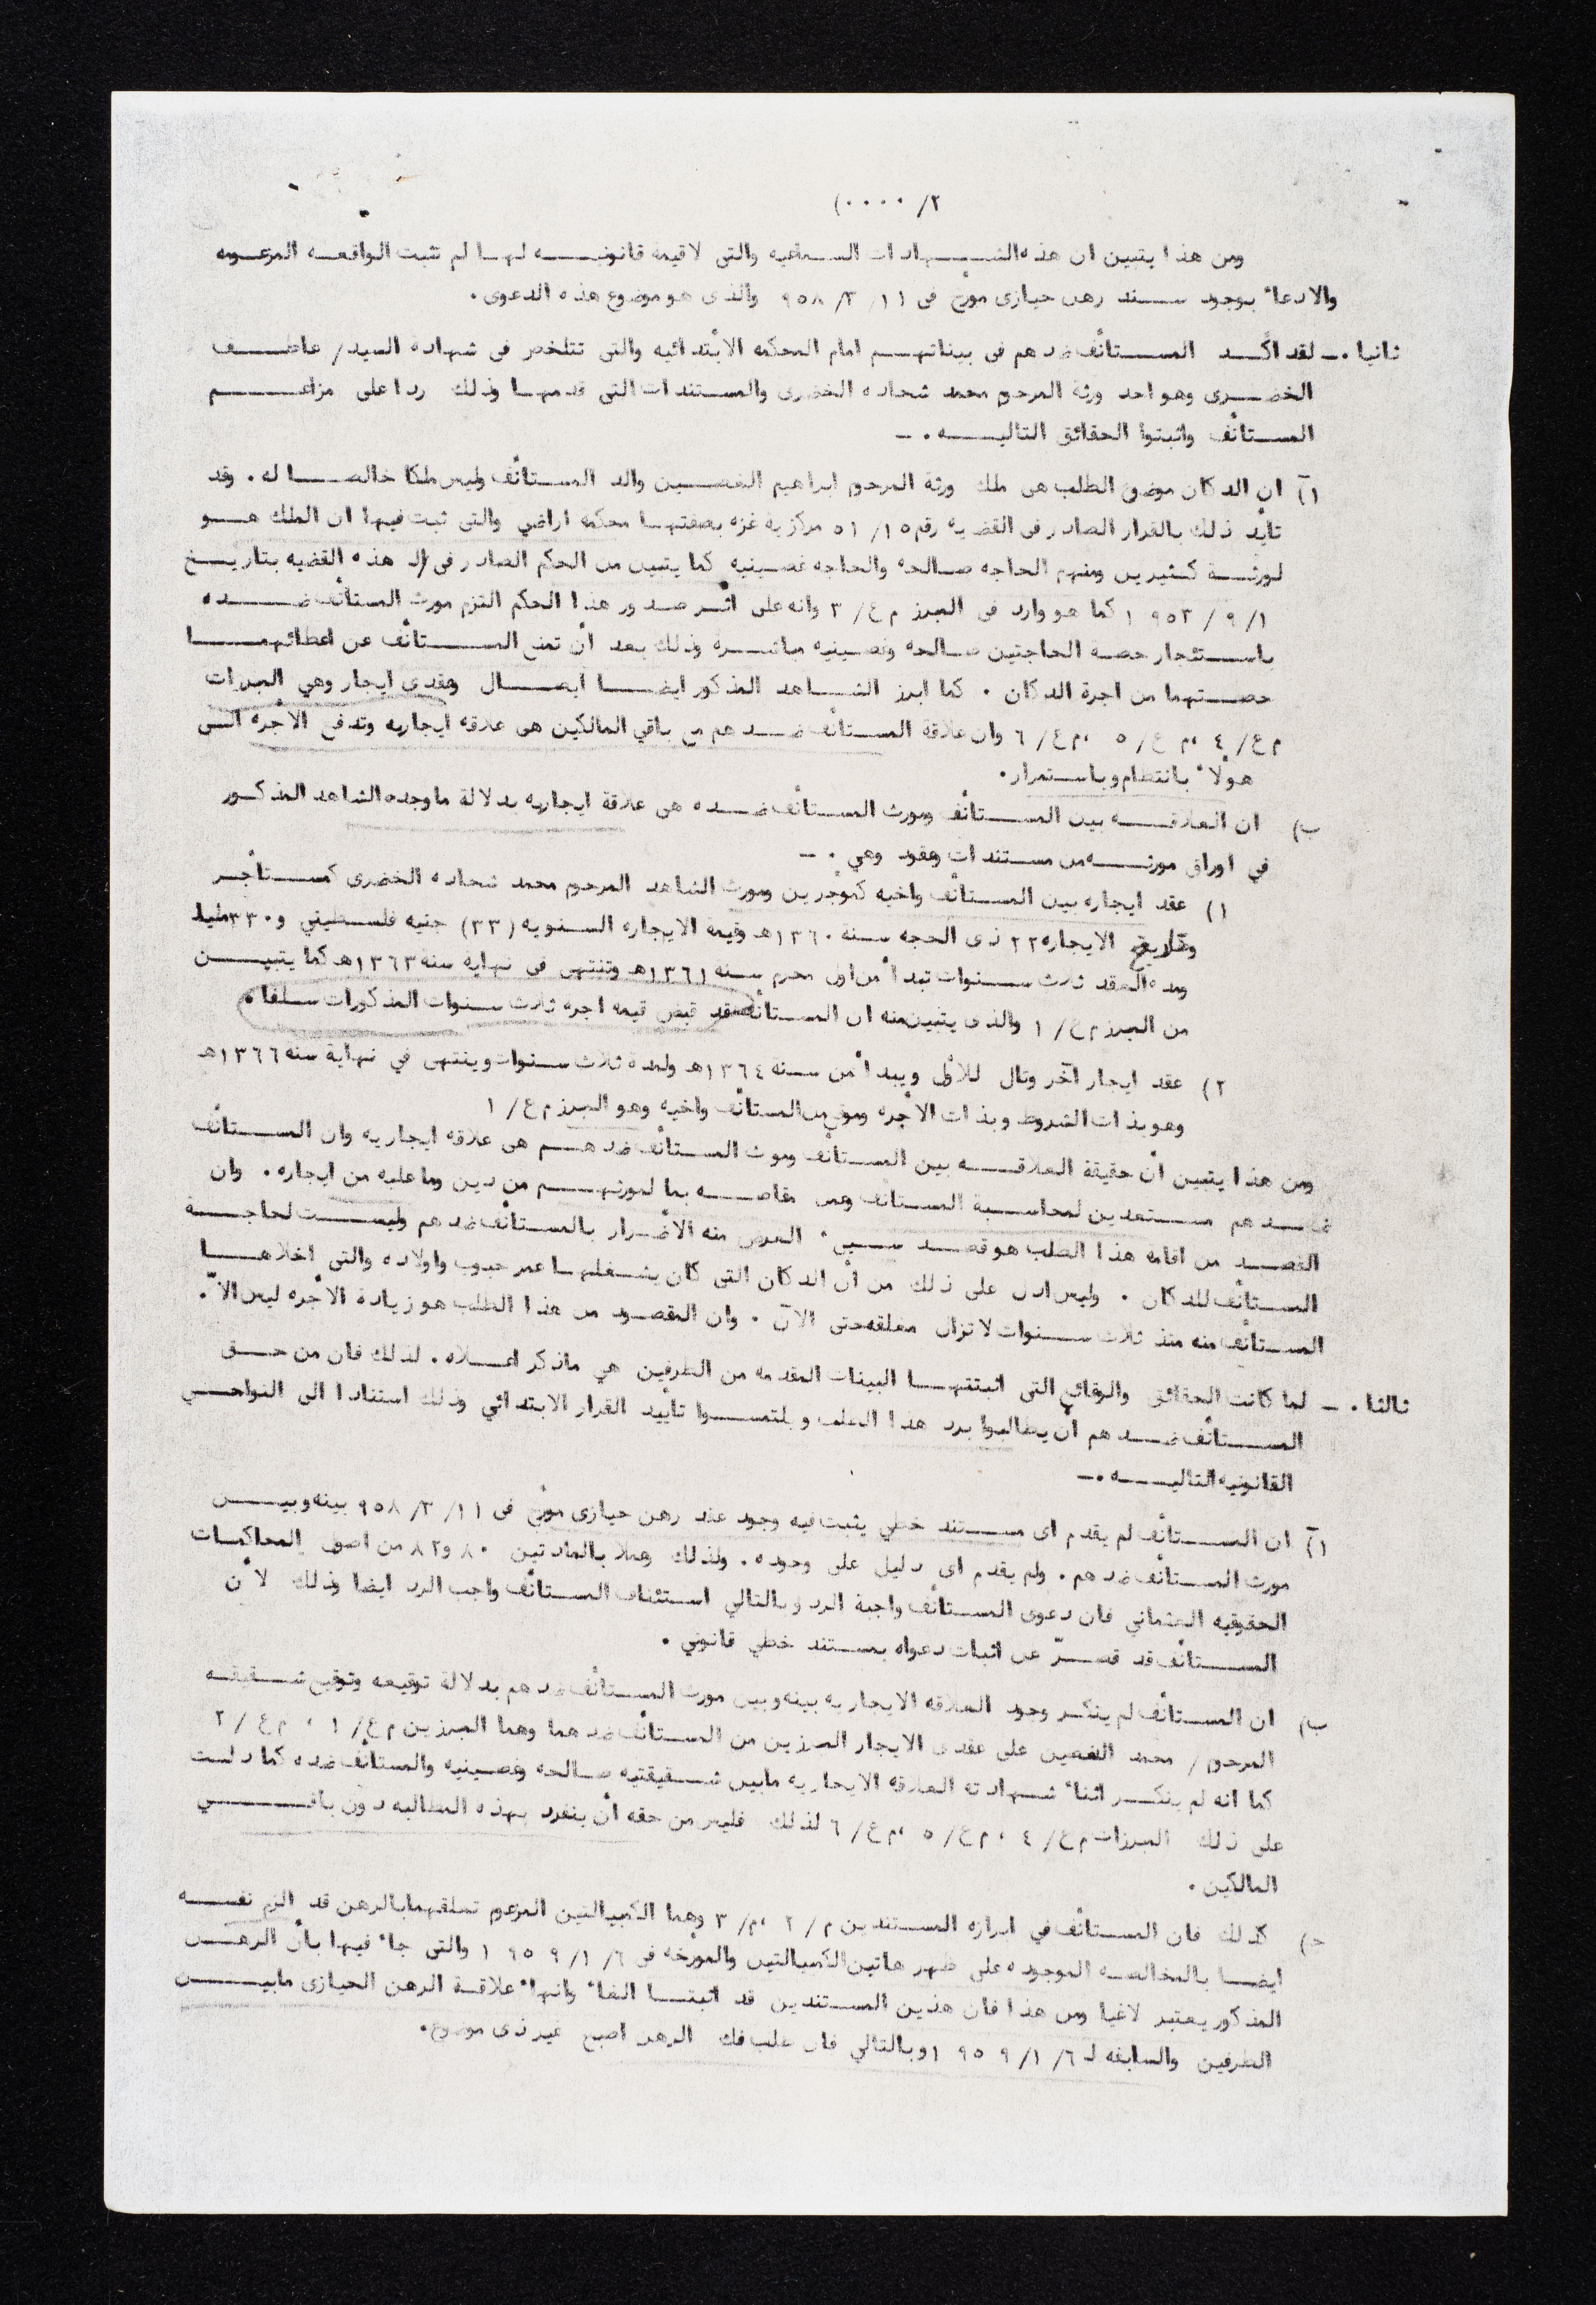 ٢/ ٠٠٠٠)
ومن هذا يتبين ان هذه الشهادات السماعيه والتى لاقيمة قانونيه لها لم تثبت الواقعه المزعومه
والادعاء بوجود سند رهن حيازى مورخ فى ١١/ ٣/ ٩٥٨ والذى هو موضوع هذه الدعوى.
ثانيا .ـ لقد اكد المستأنف ضدهم فى بيناتهم امام المحكمه الابتدائيه والتى تتلخص فى شهادة السيد/ عاطف
الخضرى وهو احد ورثة المرحوم محمد شحاده الخضرى والمستندات التى قدمها وذلك ردا على مزاعم
المستأنف واثبتوا الحقائق التاليه . ـ
آ) ان الدكان موضوع الطلب هى ملك ورثة المرحوم ابراهيم الغصين والد المستأنف وليس ملكا خالصا له. وقد
تأيد ذلك بالقرار الصادر فى القضيه رقم ١٥/ ٥١ مركزية غزه بصفتها محكمه اراضي والتى ثبت فيها ان الملك هو
لورثة كثيرين ومنهم الحاجه صالحه والحاجه غصينيه كما يتبين من الحكم الصادر فى هذه القضيه بتاريخ
١/ ٩/ ١٩٥٣ كما هو وارد فى المبرز م ع/ ٣ وانه على اثر صدور هذا الحكم التزم مورث المستأنف ضده
باستئجار حصة الحاجتين صالحه وغصينيه مباشرة وذلك بعد أن تمنع المستأنف عن اعطائهما
حصتهما من اجرة الدكان . كما ابرز الشاهد المذكور ايضا ايصال وعقدى ايجار وهي المبرزات
م ع/ ٤ ،م ع/ ٥ ،م ع/ ٦ وان علاقة المستأنف ضدهم مع باقي المالكين هى علاقه ايجاريه وتدفع الأجره الى
هولاء بانتظام وباستمرار.
ب) ان العلاقه بين المستأنف ومورث المستأنف ضده هى علاقة ايجاريه بدلالة ماوجده الشاهد المذكور
في اوراق مورثه من مستندات وعقود وهي . ـ
١) عقد ايجاره بين المستأنف واخيه كموجرين ومورث الشاهد المرحوم محمد شحاده الخضرى كمستأجر
وتاريخ الايجاره ٢٢ ذى الحجه سنة ١٣٦٠هـ وقيمة الايجاره السنويه (٣٣) جنيه فلسطيني و٣٣٠ مليا
ومدة العقد ثلاث سنوات تبدأ من اول محرم سنه ١٣٦١هـ وتنتهى فى نهايه سنه ١٣٦٣هـ كما يتبين
من المبرز م ع/ ١ والذى يتبين منه ان المستأنف قد قبض قيمه اجره ثلاث سنوات المذكورات سلفا.
٢) عقد ايجار آخر وتال للأول ويبدأ من سنة ١٣٦٤هـ ولمدة ثلاث سنوات وينتهى في نهاية سنه ١٣٦٦هـ
وهو بذات الشروط وبذات الأجره وموقع من المستأنف واخيه وهو المبرز م ع/ ١
ومن هذا يتبين أن حقيقة العلاقه بين المستأنف وموث المستأنف ضدهم هى علاقه ايجاريه وان المستأنف
ضدهم مستعدين لمحاسبة المستأنف وعمل مقاصه بما لمورثهم من دين وما عليه من ايجاره. وان
القصد من اقامة هذا الطلب هو قصد سيىء الغرض منه الأضرار بالمستأنف ضدهم وليست لحاجة
المستأنف للدكان . وليس ادل على ذلك من أن الدكان التى كان يشغلها عمر حبوب واولاده والتى أخلاها
المستأنف منه منذ ثلاث سنوات لاتزال مغلقه حتى الآن . وان المقصود من هذا الطلب هو زيادة الأجره ليس الاّ.
ثالثا .ـ لما كانت الحقائق والوقائع التى اثبتتها البينات المقدمه من الطرفين هي ماذكر اعلاه. لذلك فان من حق
المستأنف ضدهم أن يطالبوا برد هذا الطلب ويلتمسوا تأييد القرار الابتدائي وذلك استنادا الى النواحي
القانونيه التاليه .ـ
آ) ان المستأنف لم يقدم اى مستند خطي يثبت فيه وجود عقد رهن حيازى مورخ فى ١١/ ٣/ ٩٥٨ بينه وبين
مورث المستأنف ضدهم. ولم يقدم اى دليل على وجوده. ولذلك وعملا بالمادتين ٨٠ و٨٢ من اصول المحاكمات
الحقوقيه العثماني فان دعوى المستأنف واجبة الرد وبالتالي استئناف المستأنف واجب الرد ايضا وذلك لأن
المستأنف قد قصّر عن اثبات دعواه بمستند خطي قانوني .
ب) ان المستأنف لم ينكر وجود العلاقه الايجاريه بينه وبين مورث المستأنف ضدهم بدلالة توقيعه وتوقيع شقيقه
المرحوم / محمد الغصين على عقدى الايجار المبرزين من المستأنف ضدهما وهما المبرزين م ع/ ١ ، م ع / ٢
كما انه لم ينكر اثناء شهادته العلاقه الايجاريه مابين شقيقتيه صالحه وغصينيه والمستأنف ضده كما دلت
على ذلك المبرزات م ع/ ٤ ، م ع/ ٥ ،م ع/ ٦ لذلك فليس من حقه أن ينفرد بهذه المطالبه دون باقي
المالكين.
ج) كذلك فان المستأنف في ابرازه المستندين م/ ٢ ،م/ ٣ وهما الكمبيالتين المزعوم تعلقهما بالرهن قد الزم نفسه
ايضا بالمخالصه الموجوده على ظهر هاتين الكمبيالتين والمورخه فى ٦/ ١/ ١٩٥٩ والتى جاء فيها بأن الرهن
المذكور يعتبر لاغيا ومن هذا فان هذين المستندين قد اثبتا الغاء وانهاء علاقة الرهن الحيازى مابين
الطرفين والسابقه لـ ٦/ ١/ ١٩٥٩ وبالتالي فان طلب فك الرهن اصبح غير ذى موضوع.